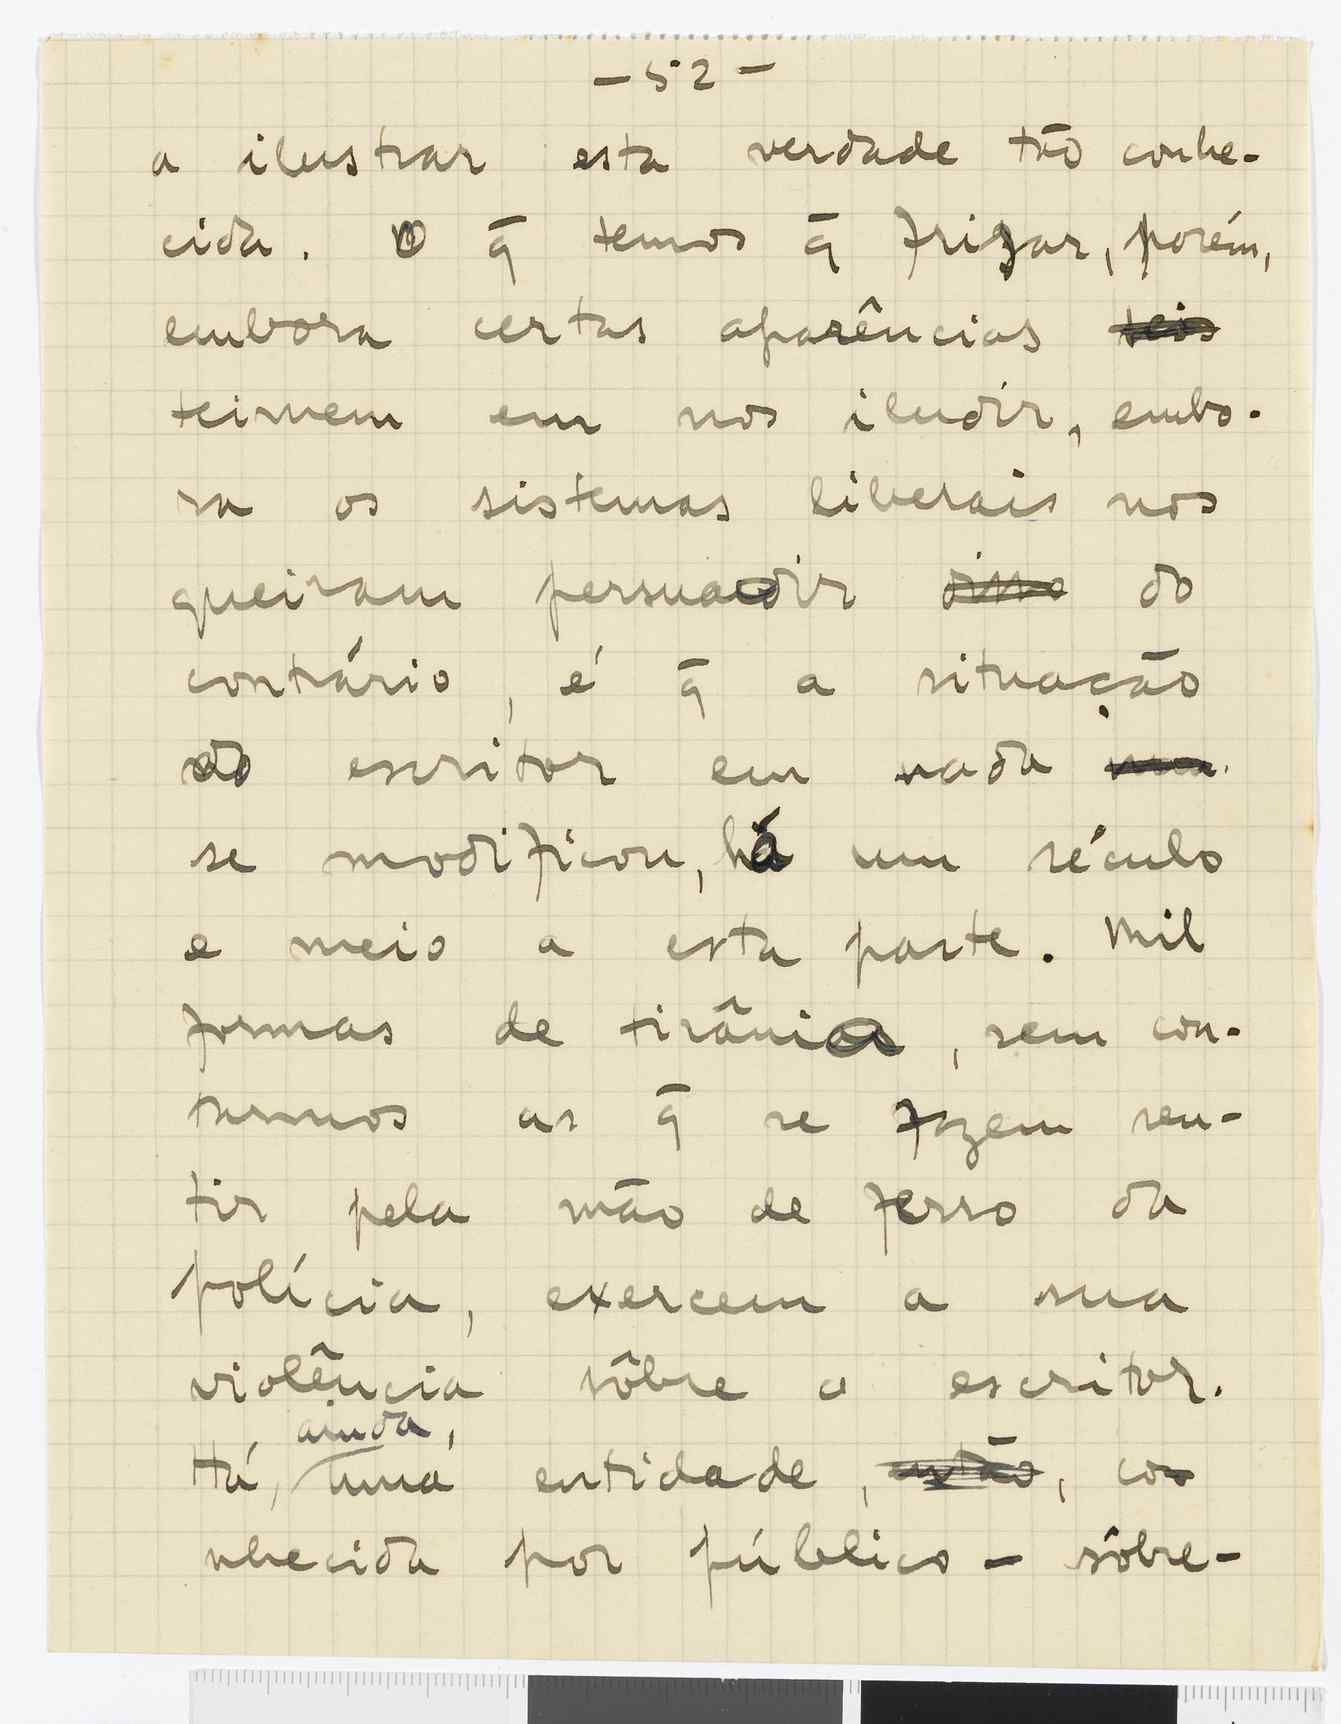 - 52 -
a ilustrar esta verdade tão conhe-
cida. O q̄ temos q̄ frizar, porém,
embora certas aparências
teimem em nos iludir, embo-
ra os sistemas liberais nos
queiram persuadir do
contrário, é q̄ a situação
do escritor em nada
se modificou, há um século
e meio a esta parte. Mil
formas de tirânia, sem con-
tarmos as q̄ se fazem sen-
tir pela mão de ferro da
polícia, exercem a sua
violência sôbre o escritor.
ainda,
Há, uma entidade, então, co
nhecida por público - sôbre-